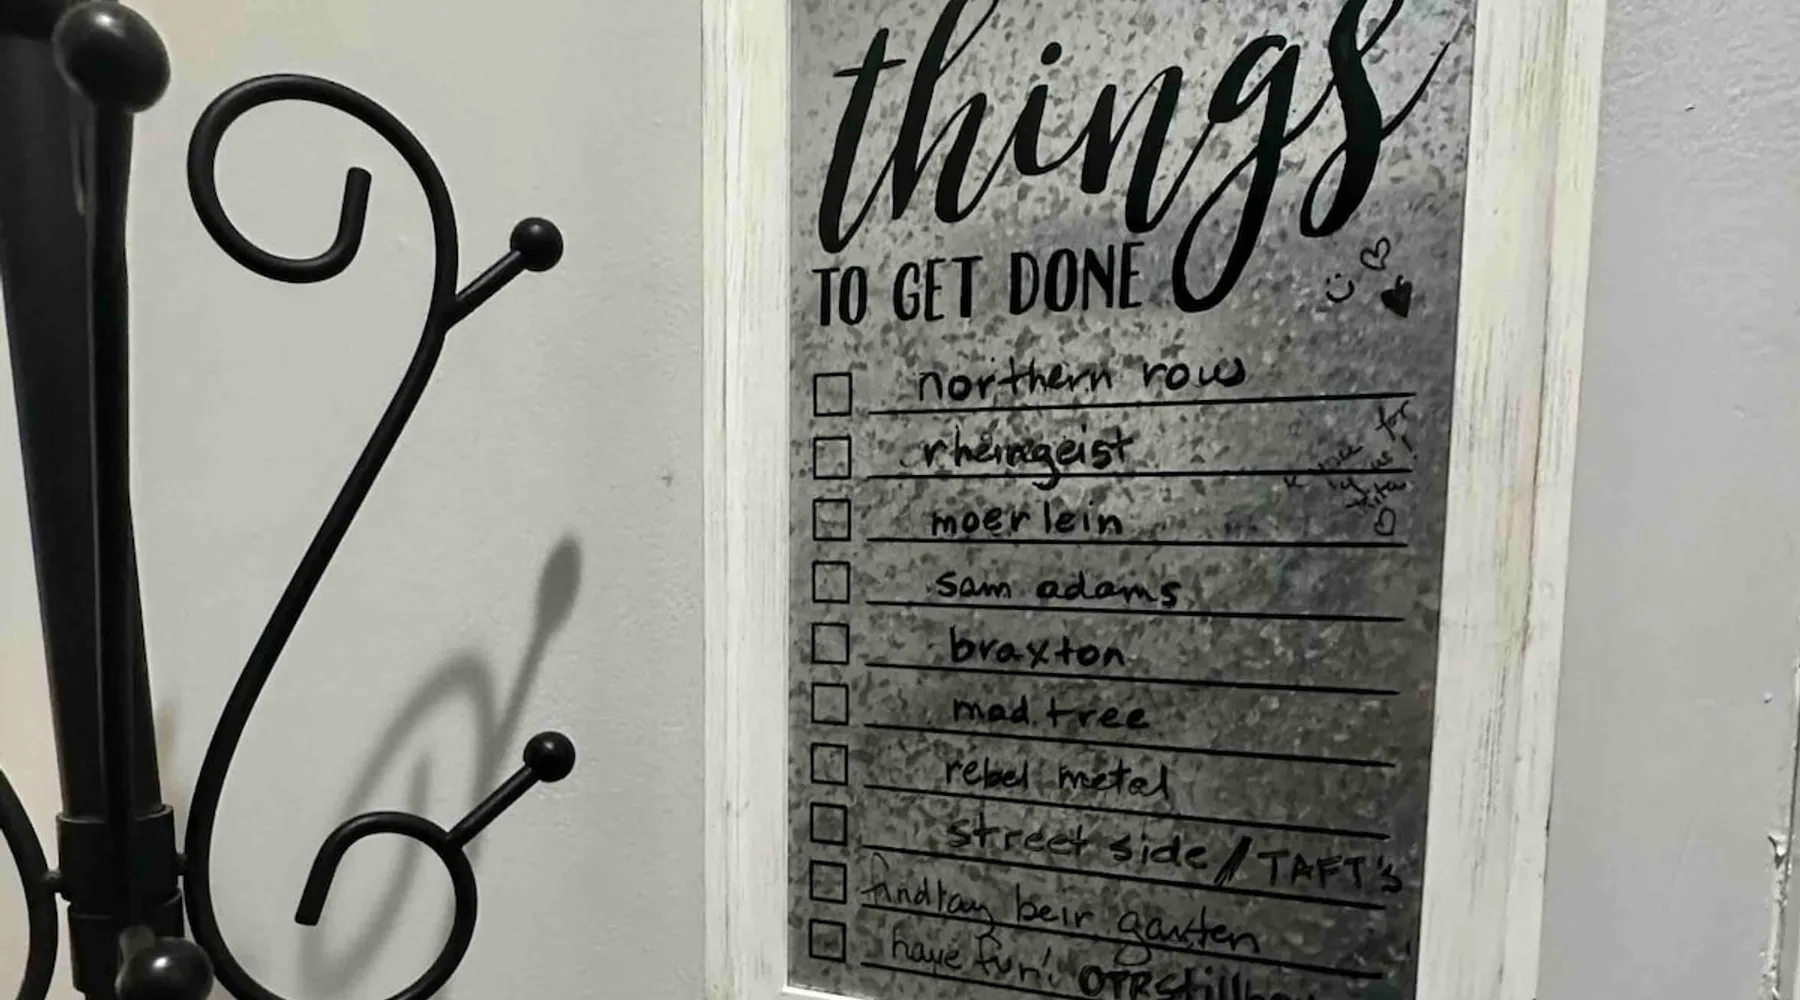 things
TO GET DONE
northern row
rheingeist
moerlein
sam adams
braxton
mad tree
rebel metal
street side / TAFT's
findlay beir garten
have fun! OTR